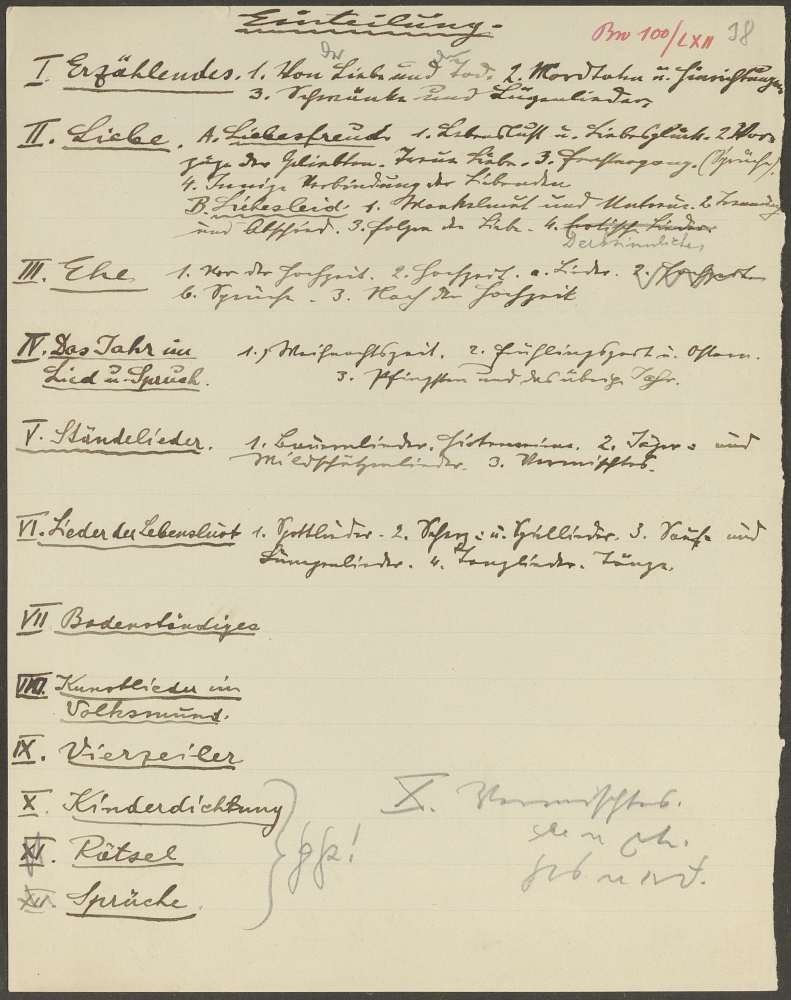 Einteilung.
Bw 100/LXII 98
der der
I. Erzählendes. 1. Von Liebe und Tod. 2. Mordtaten u. Hinrichtungen
3. Schwänke und Lügenlieder
II. Liebe. A. Liebesfreude 1. Lebenslust u. Liebesglück. 2. Vor-
züge der Geliebten. Treue Liebe. 3. (Sprüche).
4. Innige Verbindung der Liebenden
B. Liebesleid. 1. Wankelmut und Untreue. 2. Trennung
und Abschied. 3. Folgen der Liebe. 4. Erotische Lieder
Derbsinnliches
III. Ehe 1. Vor der Hochzeit. 2. Hochzeit. a. Lieder. 2. Hochzeit
b. Sprüche. 3. Nach der Hochzeit
IV. Das Jahr im 1. Weihnachtszeit. 2. Frühlingszeit u. Ostern.
Lied u. Spruch. 3. Pfingsten und das übrige Jahr.
V. Ständelieder. 1. Bauernlieder. 2. Jäger- und
Wildschützenlieder. 3. Vermischtes.
VI. Lieder der Lebenslust 1. Spottlieder. 2. Scherz- u. Spiellieder. 3. Sauf- und
Lumpenlieder. 4. Tanzlieder. Tänze.
VII Bodenständiges
VIII. Kunstlieder im
Volksmund.
IX. Vierzeiler
X. Kinderdichtung
X. Vermischtes.
XI. Rätsel
XII. Sprüche.